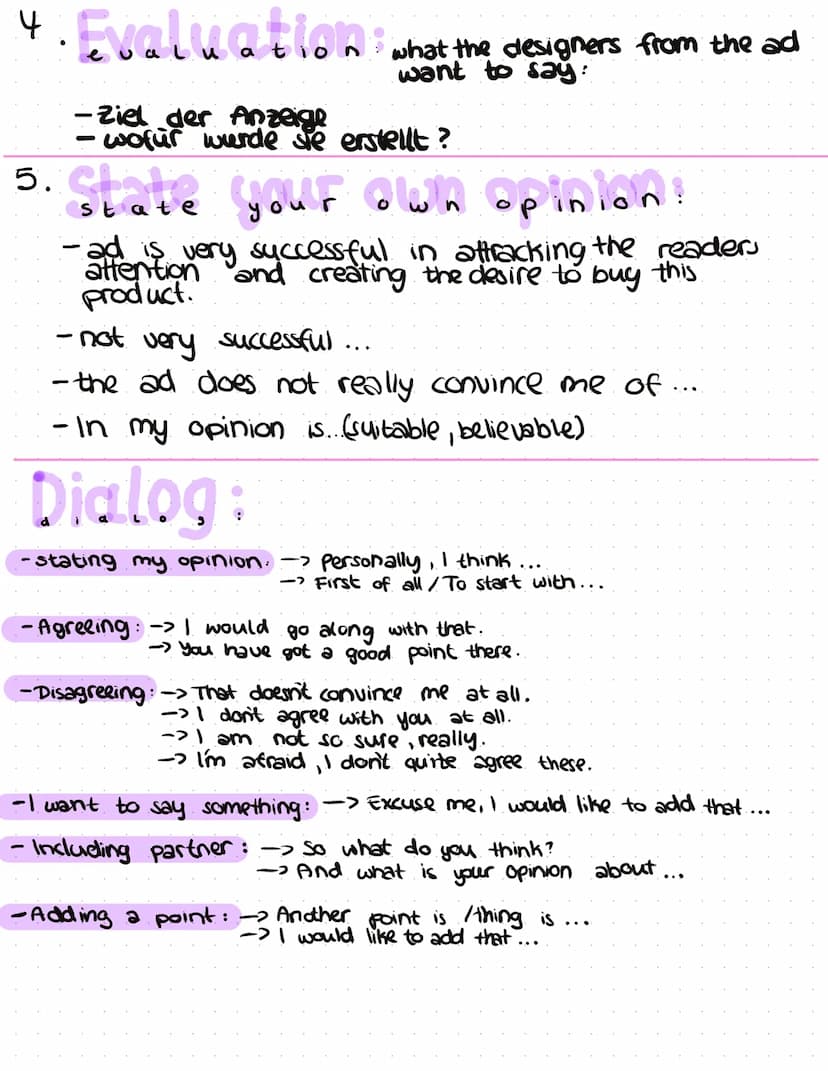 4. Evaluation: what the designers from the ad
want to say:
- Ziel der Anzeige
- wofür wurde sie erstellt?
5. State your own opinion:
- ad is very successful in attracking the readers
attention and creating the desire to buy this
product.
- not very successful ...
- the ad does not really convince me of ...
- In my opinion is...(suitable, believable)
Dialog:
- stating my opinion: -> Personally, I think ...
-> First of all / To start with ...
- Agreeing: -> I would go along with that.
-> You have got a good point there.
- Disagreeing: -> That doesn't convince me at all.
-> I don't agree with you at all.
-> I am not so sure, really.
-> I'm afraid, I don't quite agree these.
- I want to say something: -> Excuse me, I would like to add that ...
- Including partner: -> So what do you think?
-> And what is your opinion about ...
- Adding a point: -> Another point is /thing is ...
-> I would like to add that ...